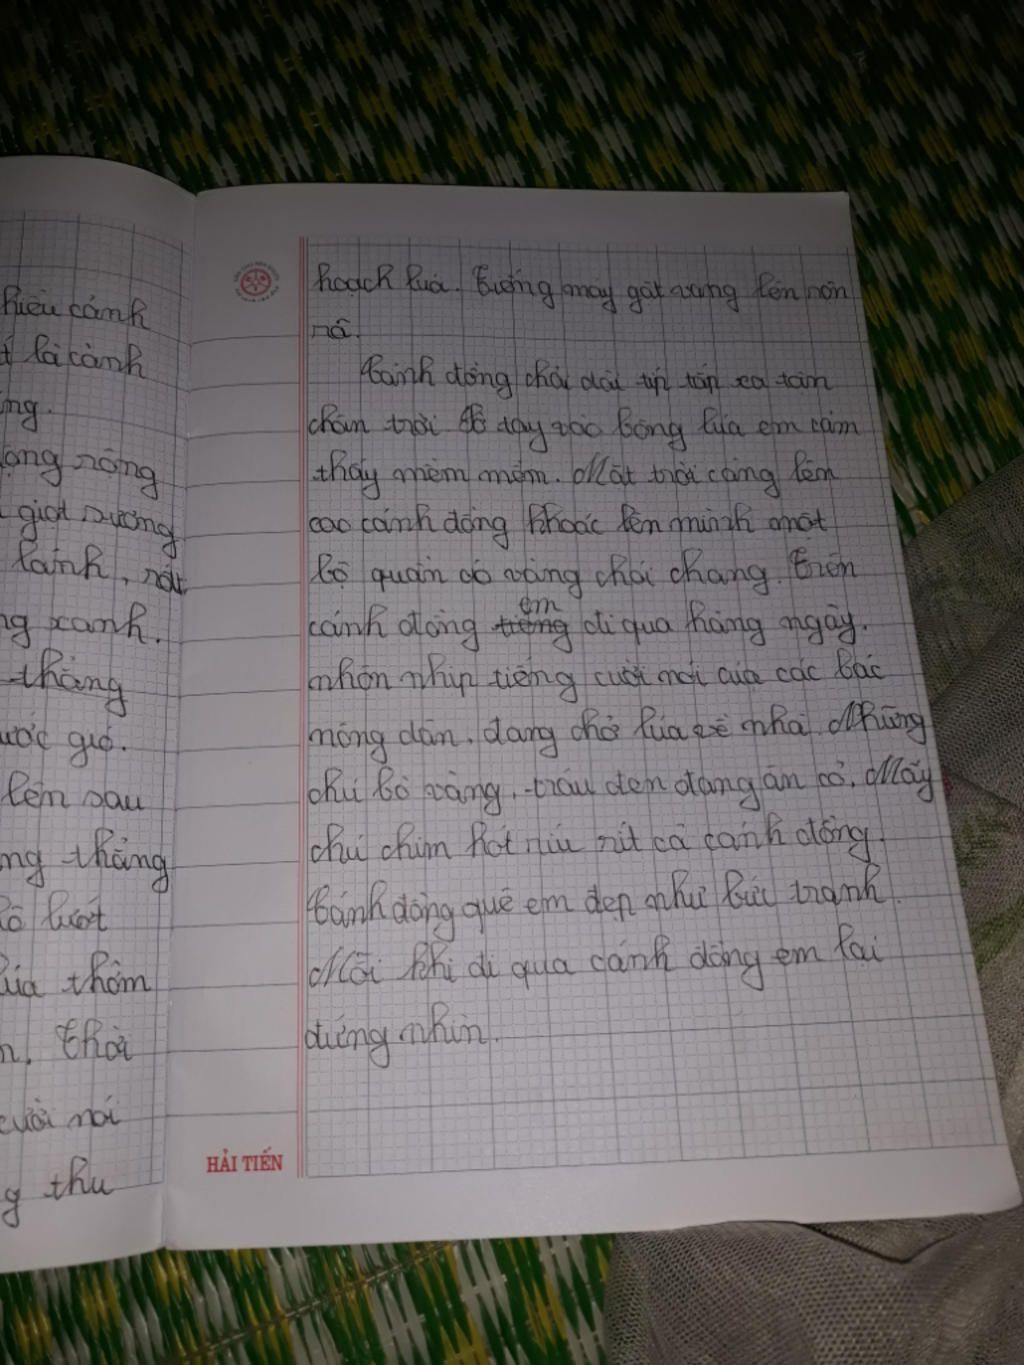 hiều cánh
là cảnh
ng.
rộng
giọt sương
lánh, 
ng xanh.
thẳng
ước gió.
lên sau
ng thẳng
lướt
lúa thơm
Thời
cười nói
g thu
hoạch lúa. Tiếng máy gặt vang lên rôn
rã.
Cánh đồng chải dài típ tấp ra tậm
chân trời. Sờ tay vào bông lúa em cảm
thấy mềm mềm. Mặt trời càng lên
cao cánh đồng khoác lên mình một
bộ quần áo vàng chói chang. Trên
em
cánh đồng tiếng đi qua hàng ngày.
nhộn nhịp tiếng cười nói của các bác
nông dân. đang chở lúa về nhà. Những
chú bò vàng, trâu đen đang ăn cỏ. Mấy
chú chim hót ríu rít cả cánh đồng.
Cánh đồng quê em đẹp như bức tranh.
Mỗi khi đi qua cánh đồng em lại
đứng nhìn.
HẢI TIẾN